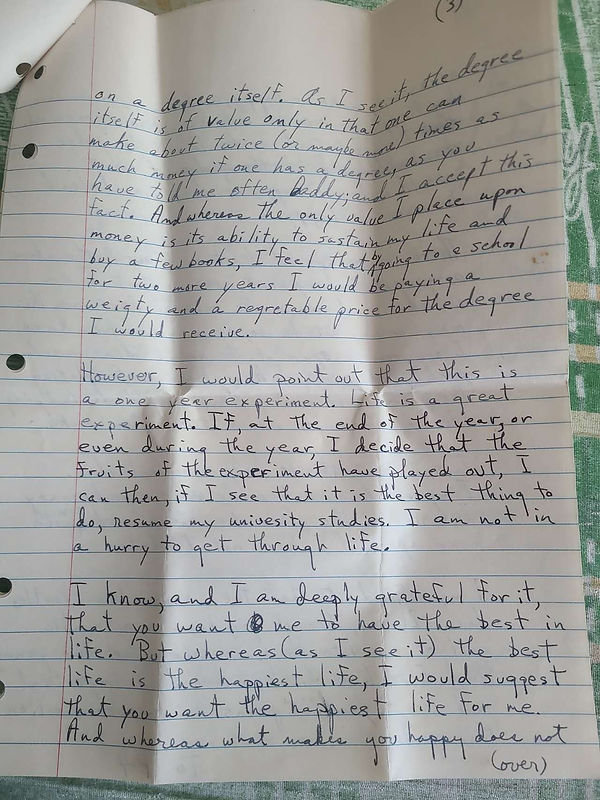 (3)
on a degree itself. As I see it, the degree
itself is of value only in that one can
make about twice (or maybe more) times as
much money if one has a degree, as you
have told me often Daddy; and I accept this
fact. And whereas the only value I place upon
money is its ability to sustain my life and
buy a few books, I feel that by going to a school
for two more years I would be paying a
weigty and a regretable price for the degree
I would receive.
However, I would point out that this is
a one year experiment. Life is a great
experiment. If, at the end of the year, or
even during the year, I decide that the
fruits of the experiment have played out, I
can then, if I see that it is the best thing to
do, resume my univesity studies. I am not in
a hurry to get through life.
I know, and I am deeply grateful for it,
that you want me to have the best in
life. But whereas (as I see it) the best
life is the happiest life, I would suggest
that you want the happiest life for me.
And whereas what makes you happy does not
(over)